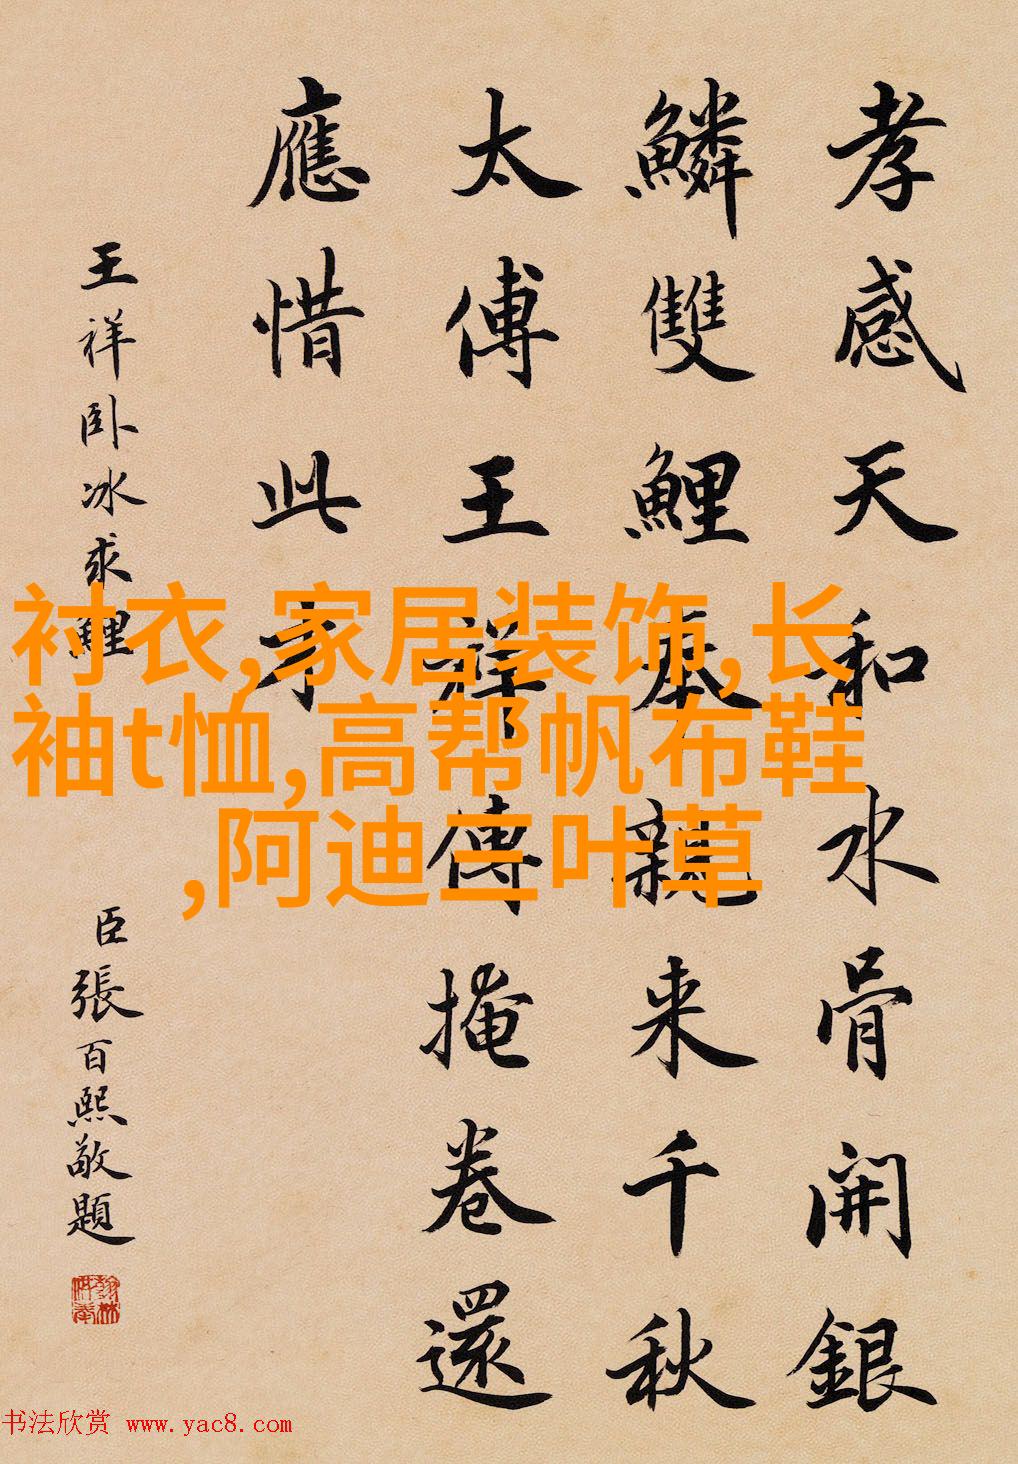 孝感天和水骨開銀
鱗雙鯉奉親来千秋
太傅王祥傳掩卷還
應惜此才
王祥卧冰求鯉
臣張百熙敬題
衬衣,家居装饰,长
袖t恤,高帮帆布鞋
,阿迪三叶草
书法欣赏 www.yac8.com